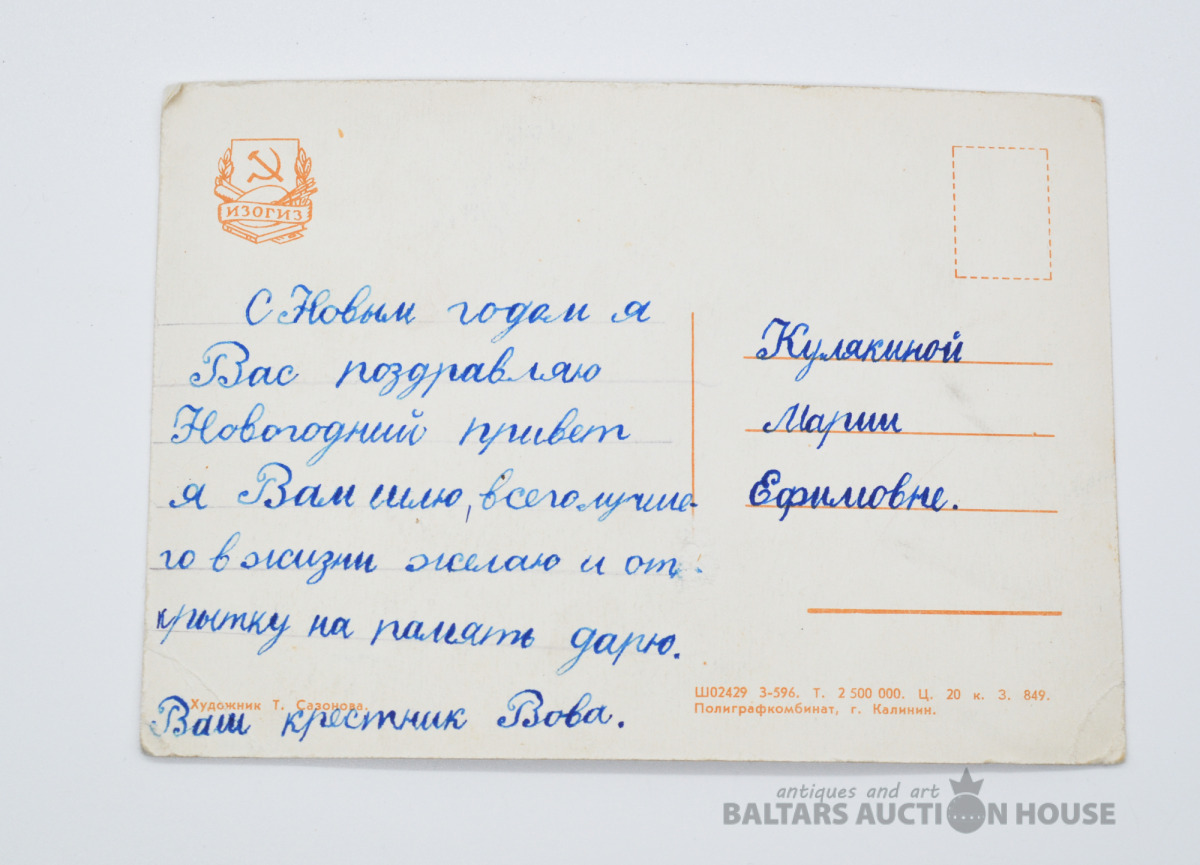 ИЗОГИЗ
С Новым годом я
Вас поздравляю
Новогодний привет
я Вам шлю, всего лучше-
го в жизни желаю и от-
крытку на память дарю.
Ваш крестник Вова.
Художник Т. Сазонова.
Кулякиной
Марии
Ефимовне.
Ш02429 З-596. Т. 2 500 000. Ц. 20 к. З. 849.
Полиграфкомбинат, г. Калинин.
antiques and art
BALTARS AUCTION HOUSE